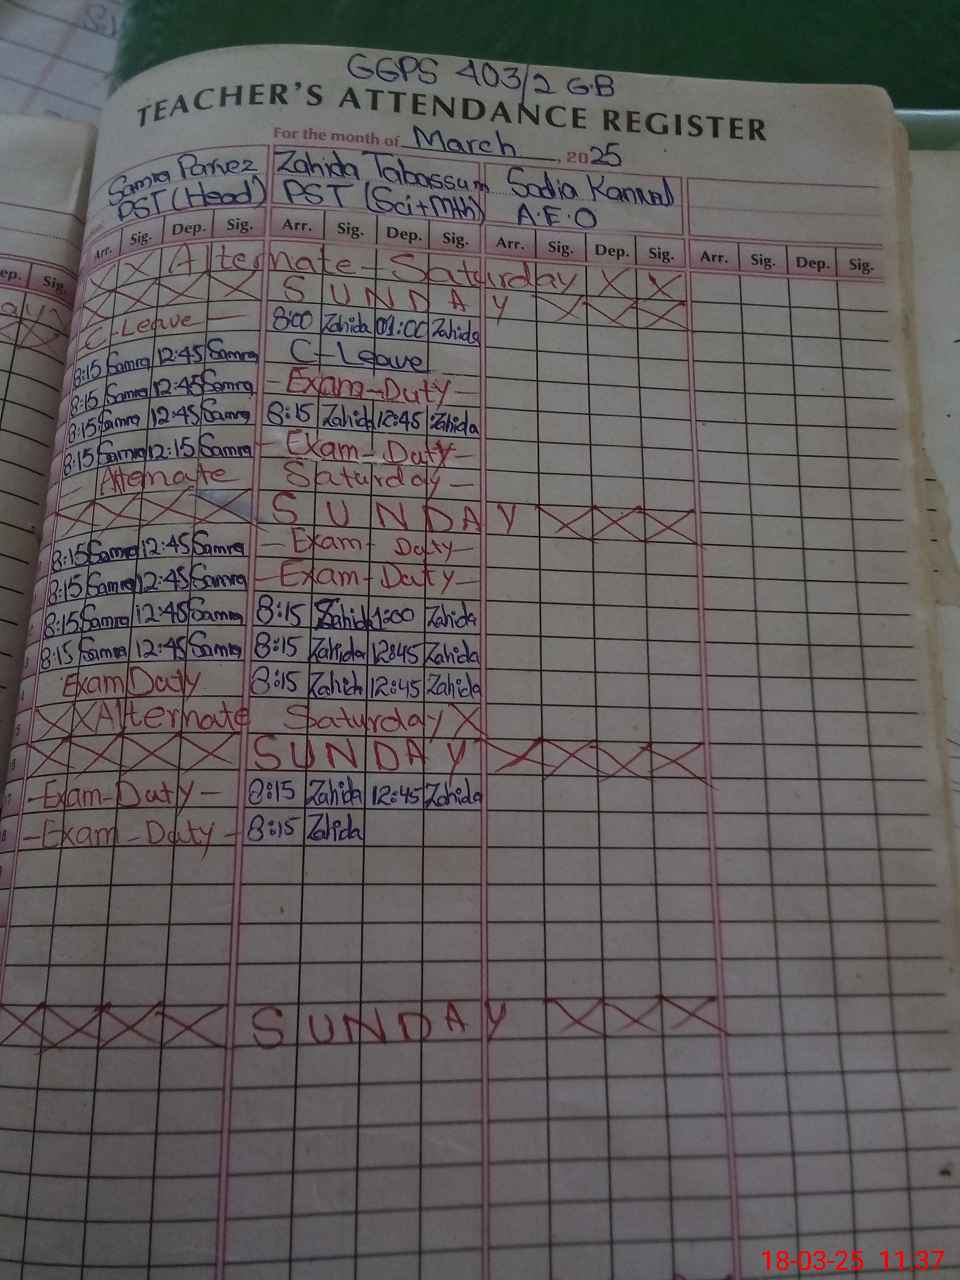 GGPS 403/2 GB
TEACHER'S ATTENDANCE REGISTER
For the month of March, 2025
Samra Parvez Zahida Tabassum Sadia Kanwal
PST (Head) PST (Sci+Mth) A.E.O
Arr. Sig. Dep. Sig. Arr. Sig. Dep. Sig. Arr. Sig. Dep. Sig. Arr. Sig. Dep. Sig.
X X Alternate - Saturday X X
X X X X S U N D A Y X X X
C-Leave — 8:00 Zahida 01:00 Zahida
8:15 Samra 12:45 Samra C-Leave
8:15 Samra 12:45 Samra - Exam-Duty -
8:15 Samra 12:45 Samra 8:15 Zahida 12:45 Zahida
8:15 Samra 12:15 Samra - Exam-Duty -
- Alternate Saturday -
X X X X S U N D A Y X X X
8:15 Samra 12:45 Samra - Exam - Duty -
8:15 Samra 12:45 Samra - Exam - Duty -
8:15 Samra 12:45 Samra 8:15 Zahida 1:00 Zahida
8:15 Samra 12:45 Samra 8:15 Zahida 12:45 Zahida
Exam Duty 8:15 Zahida 12:45 Zahida
X X Alternate Saturday X
X X X X S U N D A Y X X X X
- Exam - Duty - 8:15 Zahida 12:45 Zahida
- Exam - Duty - 8:15 Zahida
X X X X S U N D A Y X X X
18-03-25 11:37